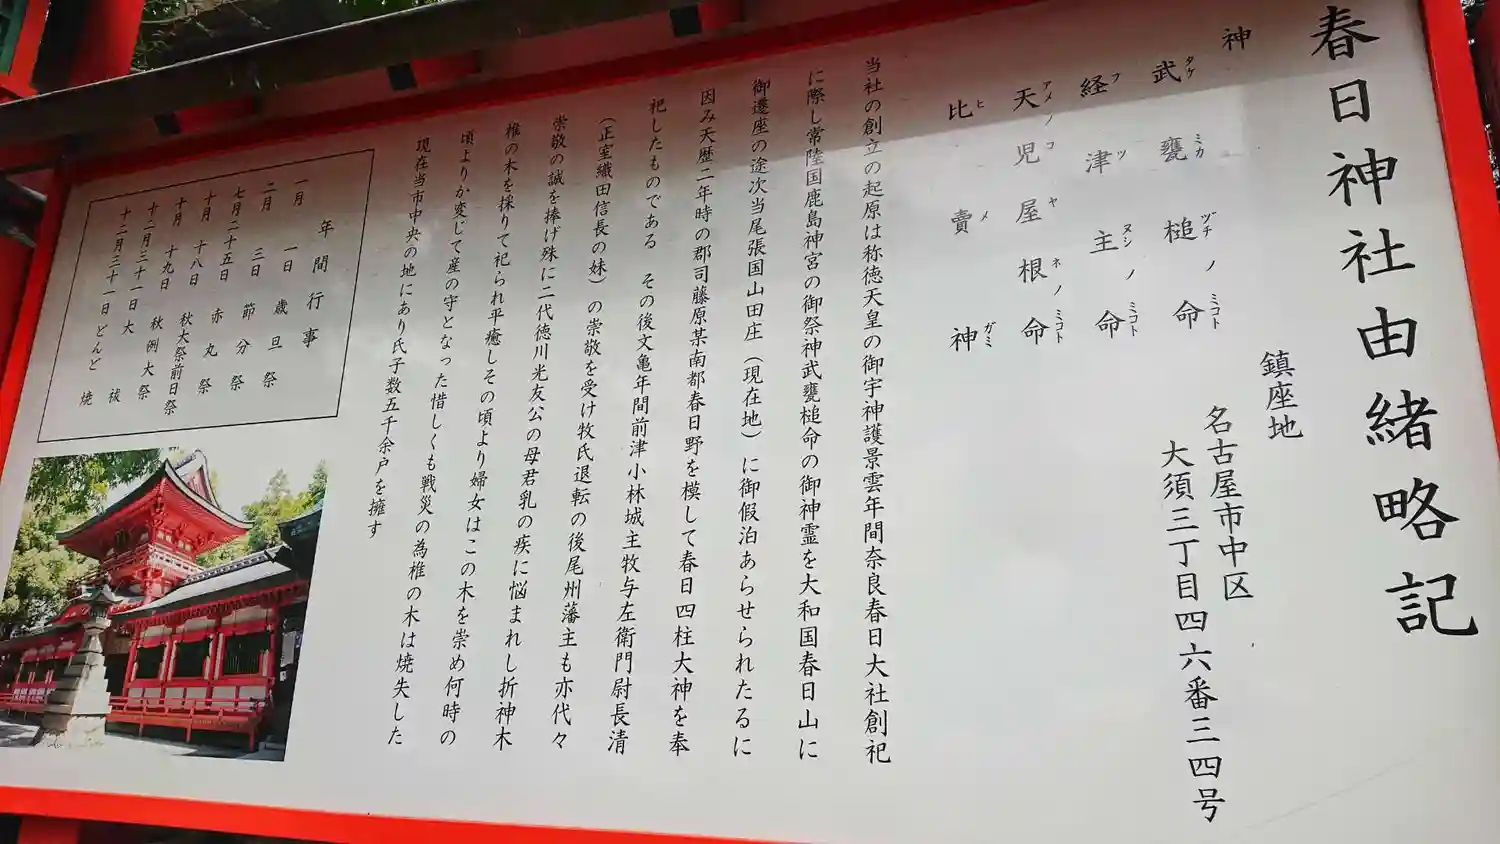 春日神社由緒略記
鎮座地
名古屋市中区
大須三丁目四六番三四号
神
武甕槌ノ命
タケ ミカ ヅチ ミコト
経津主ノ命
フ ツ ヌシ ミコト
天児屋根ノ命
アメノ コ ヤ ネ ミコト
比賣神
ヒ メ ガミ
当社の創立の起原は称徳天皇の御宇神護景雲年間奈良春日大社創祀
に際し常陸国鹿島神宮の御祭神武甕槌命の御神霊を大和国春日山に
御遷座の途次当尾張国山田庄（現在地）に御假泊あらせられたるに
因み天歴二年時の郡司藤原某南都春日野を模して春日四柱大神を奉
祀したものである その後文亀年間前津小林城主牧与左衛門尉長清
（正室織田信長の妹）の崇敬を受け牧氏退転の後尾州藩主も亦代々
崇敬の誠を捧げ殊に二代徳川光友公の母君乳の疾に悩まれし折神木
椎の木を採りて祀られ平癒しその頃より婦女はこの木を崇め何時の
頃よりか変じて産の守となった惜しくも戦災の為椎の木は焼失した
現在当市中央の地にあり氏子数五千余戸を擁す
年間行事
一月 一日 歳旦祭
二月 三日 節分祭
七月二十五日 赤丸祭
十月 十八日 秋大祭前日祭
十月 十九日 秋例大祭
十二月三十一日 大祓
十二月三十一日 どんど焼